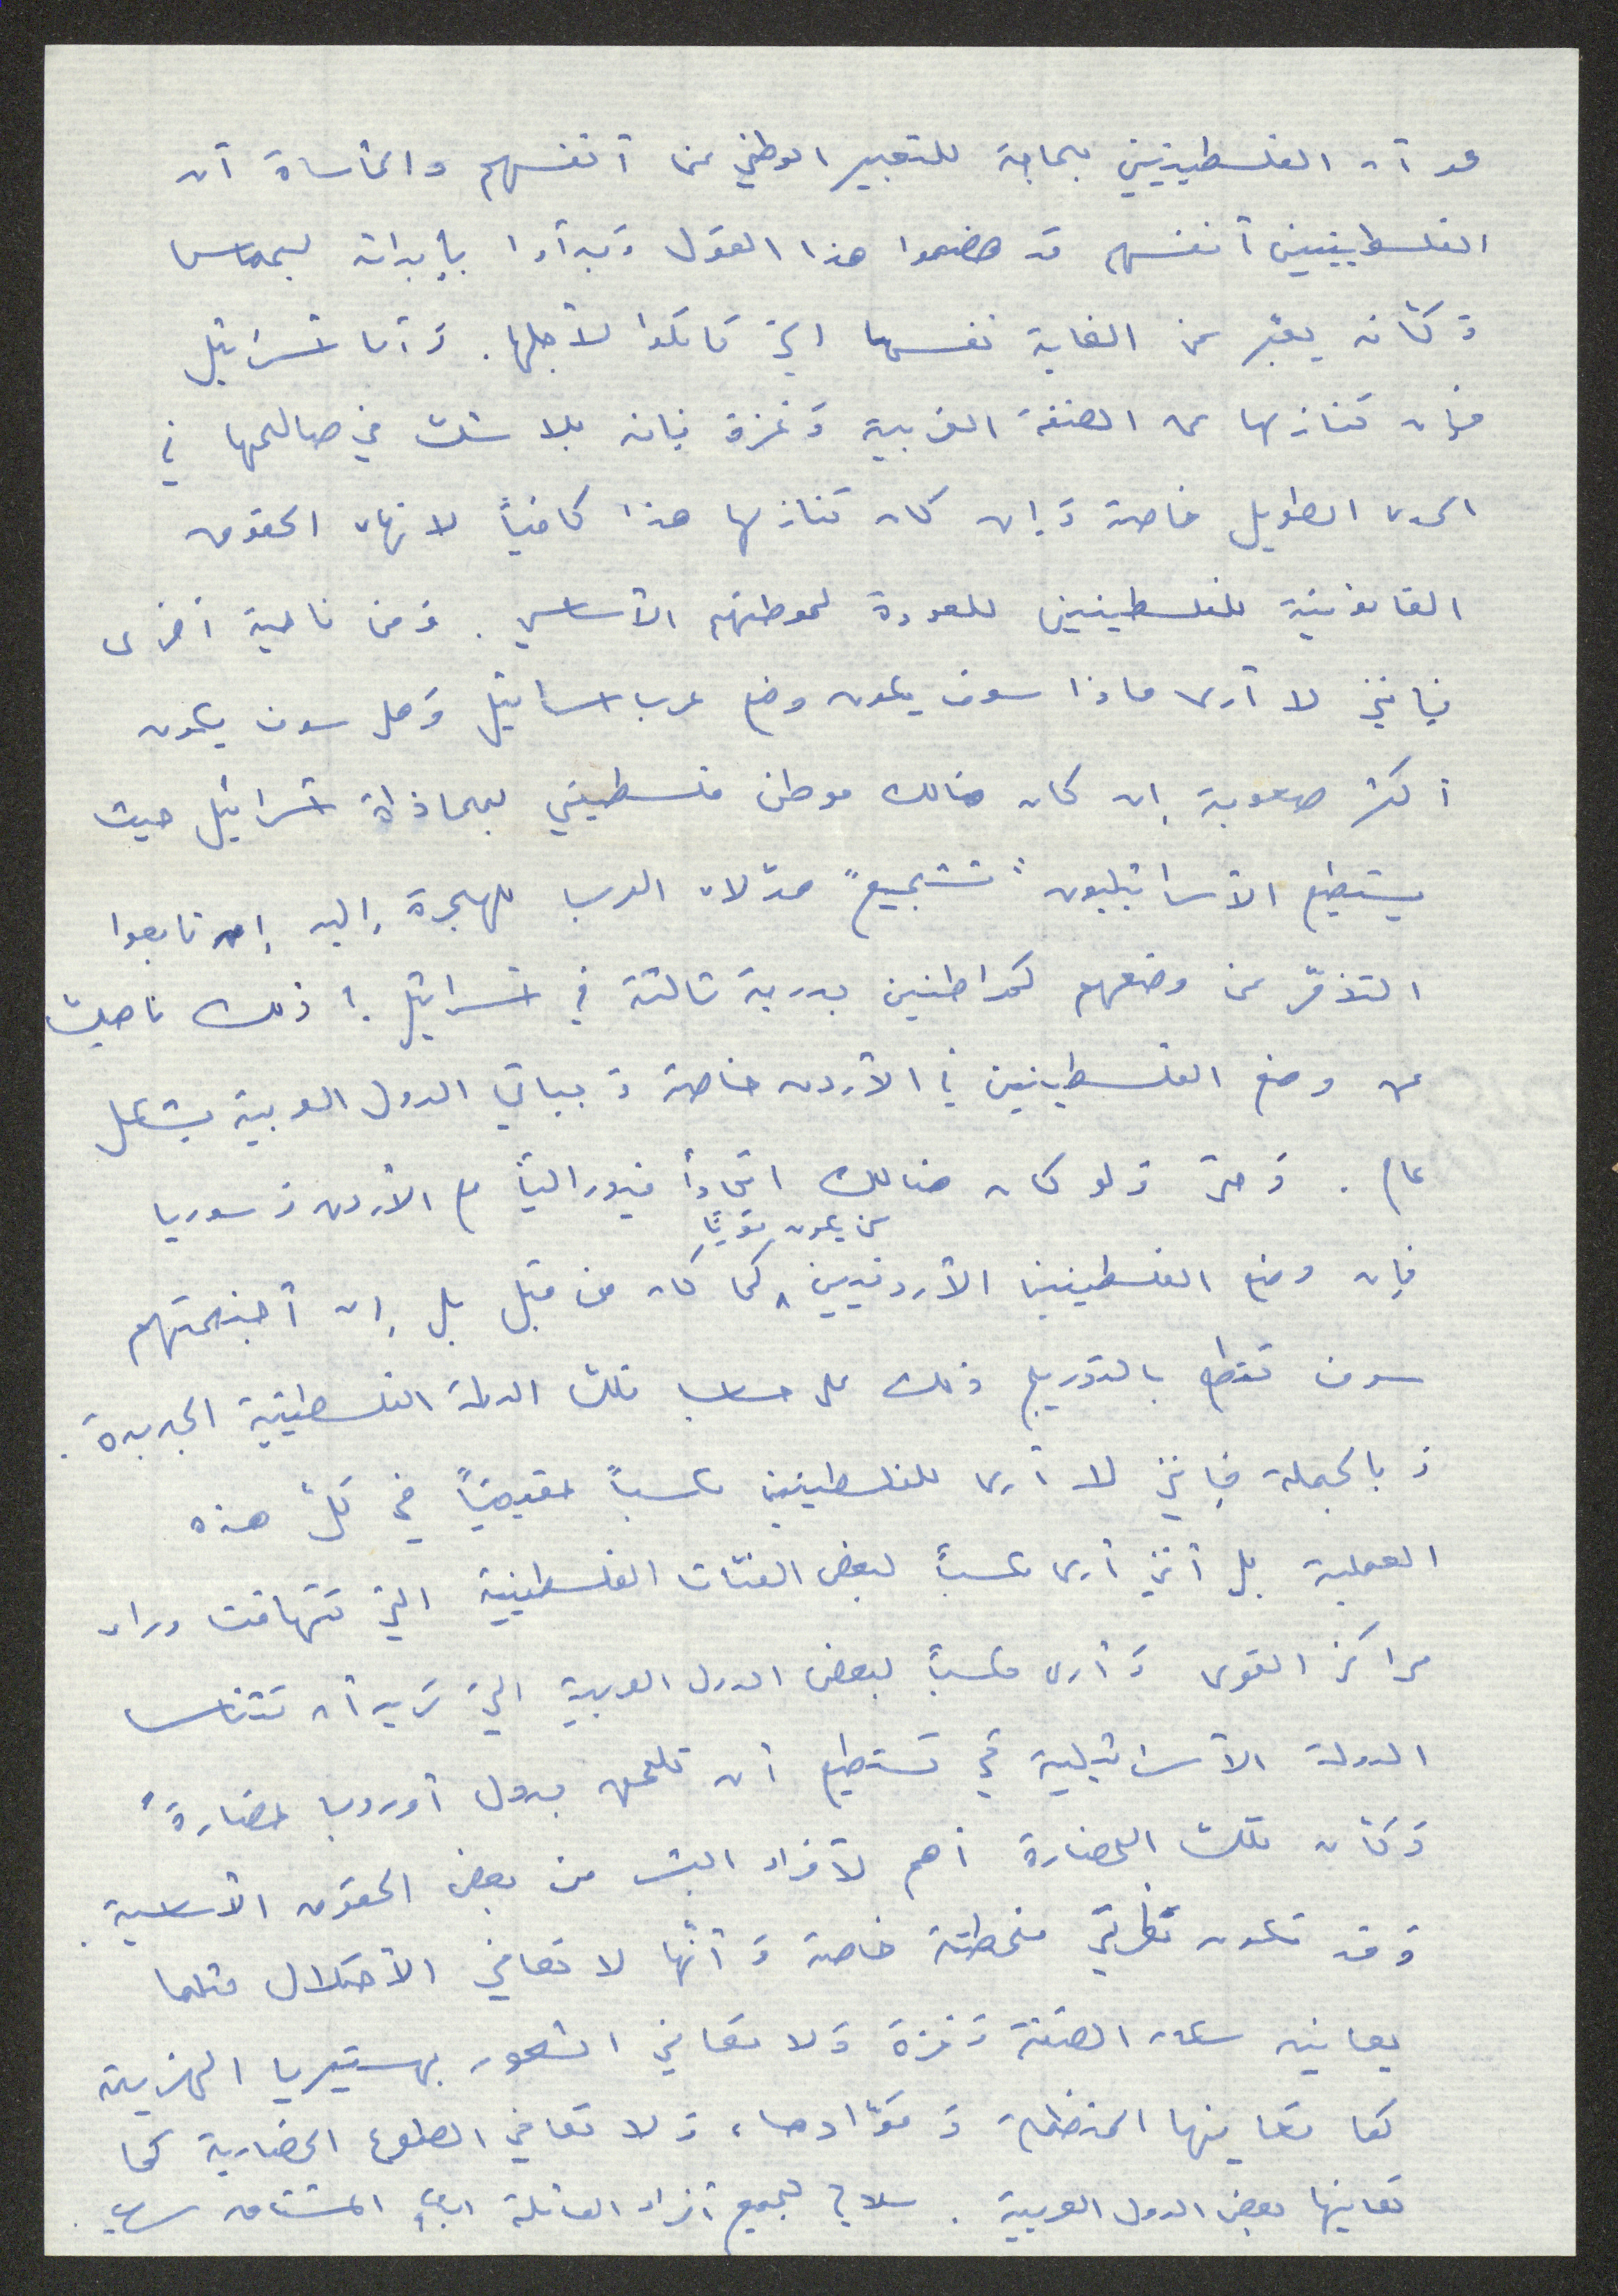 هو أن الفلسطينيين بحاجة للتعبير الوطني عن أنفسهم والمأساة أن
الفلسطينيين أنفسهم قد هضموا هذا القول وبدأوا بإبدائه بحماس
وكأنه يعبّر عن الغاية نفسها التي قاتلوا لأجلها. وأما اسرائيل
فإن تنازلها عن الضفة الغربية وغزة فإنه بلا شك في صالحها في
المدى الطويل خاصة وإن كان تنازلها هذا كافياً لانهاء الحقوق
القانونية للفلسطينيين للعودة لموطنهم الأساسي. ومن ناحية أخرى
فإنني لا أرى ماذا سوف يكون وضع عرب اسرائيل وهل سوف يكون
أكثر صعوبة إن كان هنالك موطن فلسطيني بمحاذاة اسرائيل حيث
يستطيع الأسرائيليون "تشجيع" هؤلاء العرب للهجرة إليه إن تابعوا
التذمّر عن وضعهم كمواطنين بدرجة ثالثة في اسرائيل؟ ذلك ناهيك
عن وضع الفلسطينيين في الأردن خاصة وبباقي الدول العربية بشكل
عام. وحتى ولو كان هنالك اتحاداً فيدرالياً مع الأردن وسوريا
فإن وضع الفلسطينيين الأردنيين لن يكون قوياً كما كان من قبل بل إن أجنحتهم
سوف تقطع بالتدريج وذلك على حساب تلك الدولة الفلسطينية الجديدة.
وبالجملة فإنني لا أرى للفلسطينيين مكسباً حقيقياً في كلّ هذه
العملية بل أنني أرى مكسباً لبعض الفئات الفلسطينية التي تتهافت وراء
مراكز القوى وأرى مكسباً لبعض الدول العربية التي تريد أن تتناسى
الدولة الأسرائيلية كي تستطيع أن تلحق بدول أوروبا حضارةً
وكأن تلك الحضارة أهم لأفراد البشر من بعض الحقوق الأساسية.
وقد تكون نظرتي مخطئة خاصة وأنّها لا تعاني الأحتلال مثلما
يعانيه سكان الضفة وغزة ولا تعاني الشعور بهستيريا الهزيمة
كما تعانيها المنظمة وقوّادها، ولا تعاني الطموح الحضارية كما
تعانيها بعض الدول العربية. سلامي لجميع أفراد العائلة ابنك المشتاق سري.